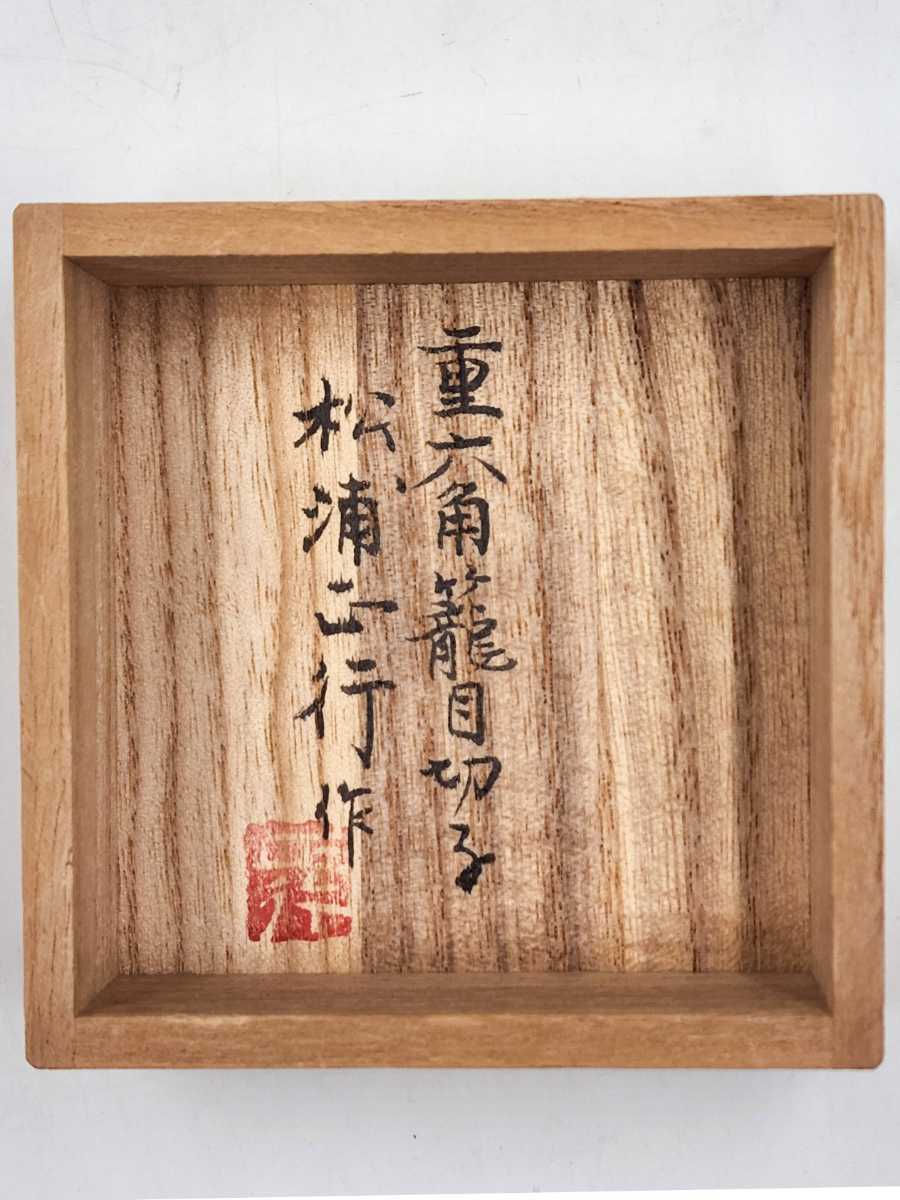 重六角籠目切子
松浦正行作